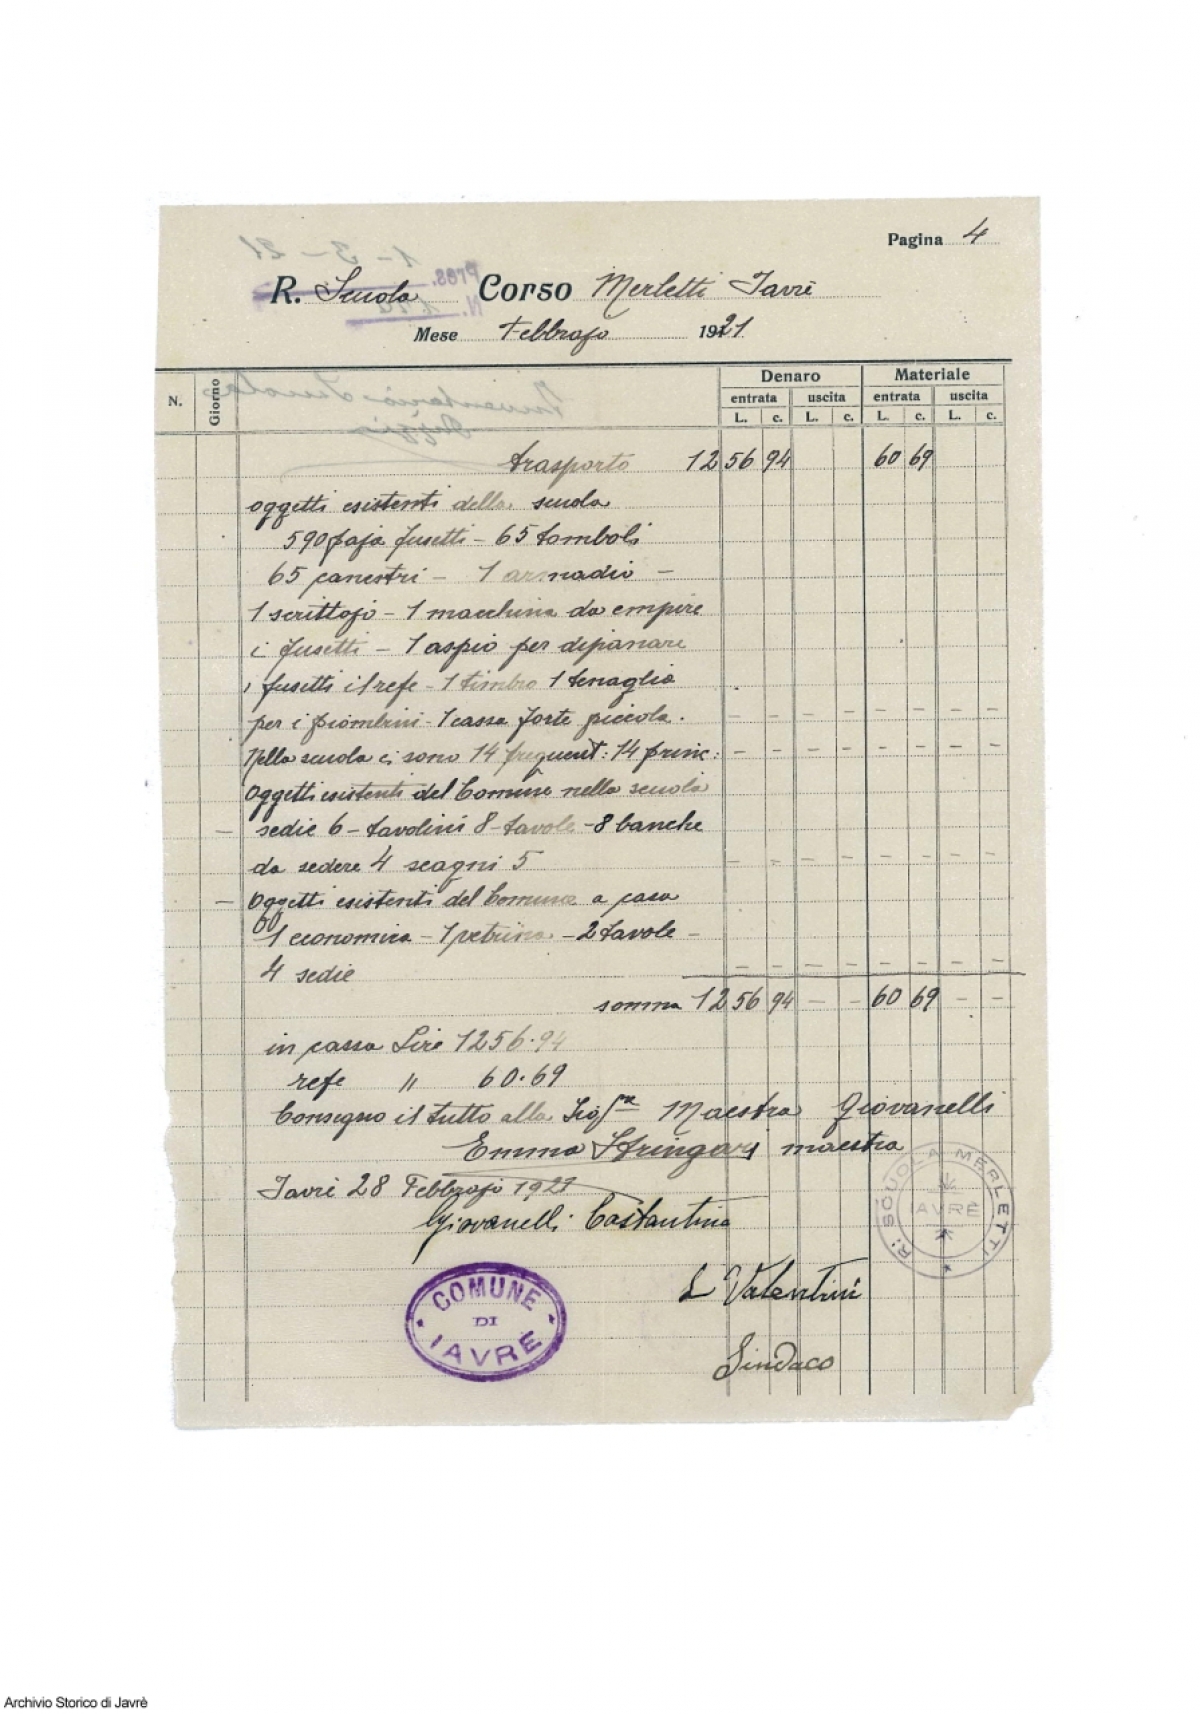 Pagina 4
R. Scuola Corso Merletti Javrè
Mese Febbrajo 1921
N. Giorno Denaro Materiale
entrata uscita entrata uscita
L. c. L. c. L. c. L. c.
trasporto 1256 94 60 69
oggetti esistenti della scuola
590 paja fusetti - 65 tomboli
65 canestri - 1 armadio -
1 scrittojo - 1 macchina da empire
i fusetti - 1 aspio per depanare
i fusetti il refe - 1 timbro 1 tenaglia
per i piombini - 1 cassa forte piccola.
Nella scuola ci sono 14 frequent: 14 princ:
Oggetti esistenti del Comune nella scuola
sedie 6 - tavolini 8 - tavole - 8 banche
da sedere 4 scagni 5
Oggetti esistenti del Comune a casa
1 economica - 1 vetrina - 2 tavole -
4 sedie
somma 1256 94 - - 60 69 - -
in cassa Lire 1256.94
refe " 60.69
Consegno il tutto alla Sig.ra Maestra Giovanelli
Emma Stringari maestra
Javrè 28 Febbrajo 1921
Giovanelli Costantina
R. SCUOLA MERLETTI
IAVRÈ
L Valentini
COMUNE
DI
IAVRÈ
Sindaco
Archivio Storico di Javrè